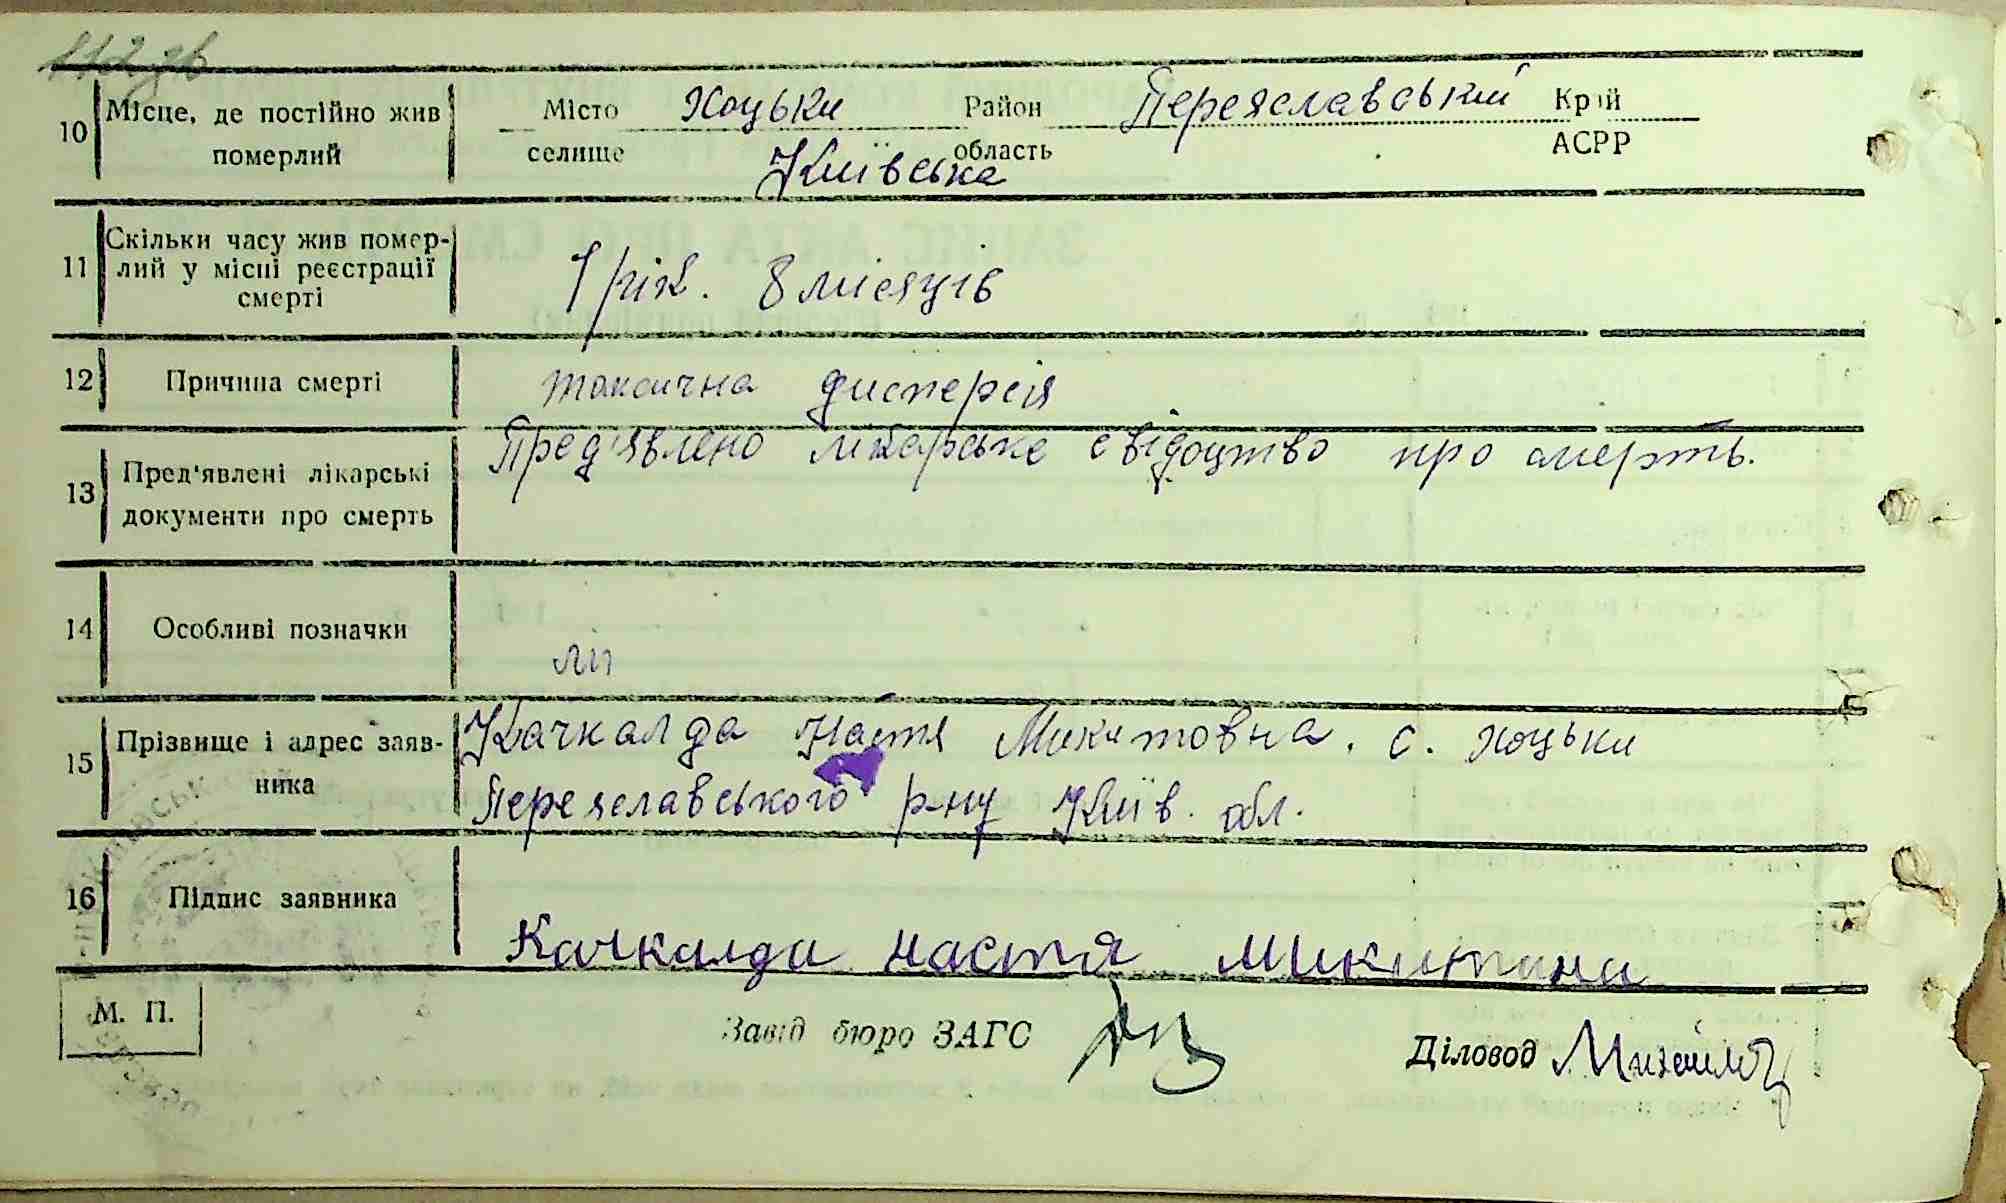 112 зв
10 Місце, де постійно жив померлий Місто Хоцьки Район Переяславський Край
селище Київська область АСРР
11 Скільки часу жив помер-
лий у місці реєстрації
смерті 1 рік. 8 місяців
12 Причина смерті токсична дисперсія
13 Пред'явлені лікарські
документи про смерть Пред'явлено лікарське свідоцтво про смерть.
14 Особливі позначки
15 Прізвище і адрес заяв-
ника Качкалда Настя Микитовна. с. Хоцьки
Переяславського р-ну Київ. обл.
16 Підпис заявника Качкалда настя микитина
М. П. Завід бюро ЗАГС Діловод